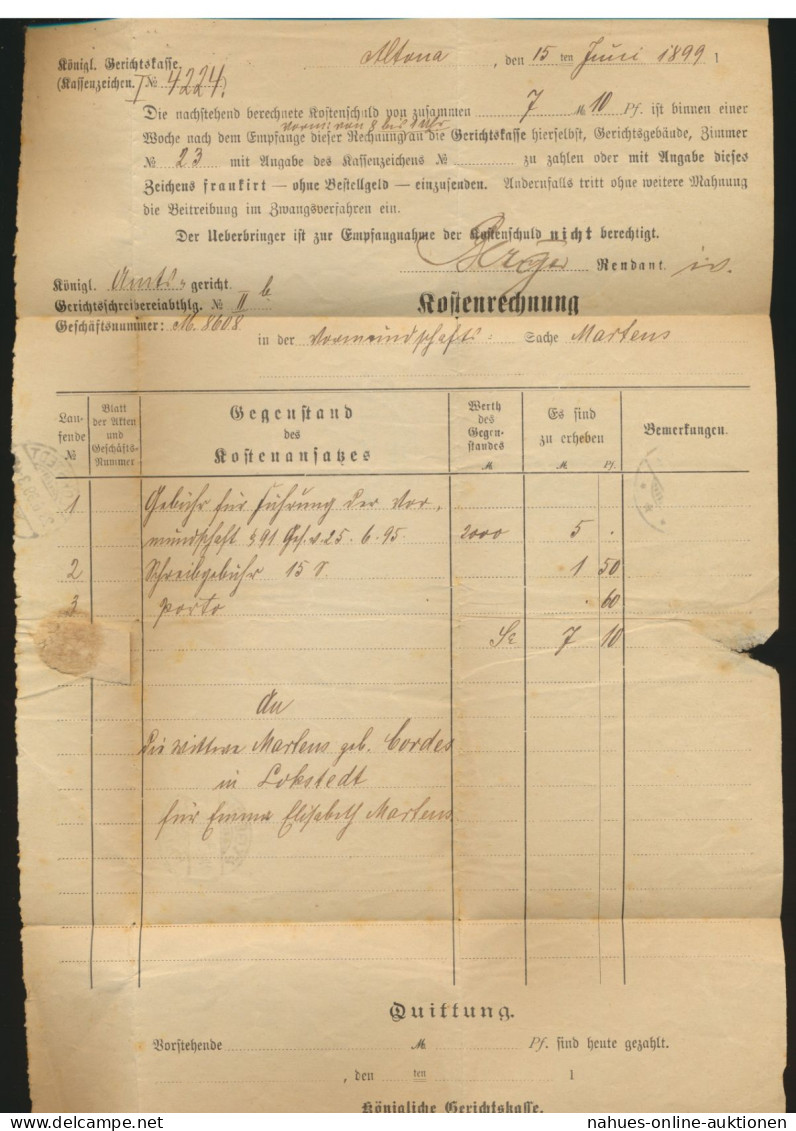 Königl. Gerichtskasse.
Altona, den 15ten Juni 1899 1
(Kassenzeichen. I № 4224.)
Die nachstehend berechnete Kostenschuld von zusammen 7 M 10 Pf. ist binnen einer
Woche nach dem Empfange dieser Rechnung an die Gerichtskasse hierselbst, Gerichtsgebäude, Zimmer
№ 23 mit Angabe des Kassenzeichens № zu zahlen oder mit Angabe dieses
Zeichens frankirt — ohne Bestellgeld — einzusenden. Andernfalls tritt ohne weitere Mahnung
die Beitreibung im Zwangsverfahren ein.
Der Ueberbringer ist zur Empfangnahme der Kostenschuld nicht berechtigt.
Rendant.
Königl. Amts-gericht.
Gerichtsschreibereiabthlg. № II b
Kostenrechnung
Geschäftsnummer: M. 8608
in der Vormundschafts- Sache Martens
Laufende № Blatt der Akten und Geschäfts-Nummer Gegenstand des Kostenansatzes Werth des Gegenstandes M. Es sind zu erheben M. Pf. Bemerkungen.
1 Gebühr für Führung der Vor-
mundschaft § 91 Ges. v. 25. 6. 95. 2000 5 .
2 Schreibgebühr 15 S. 1 50
3 Porto . 60
Se 7 10
An
die Wittwe Martens geb. Cordes
in Lokstedt
für Emma Elisabeth Martens
Quittung.
Vorstehende M Pf. sind heute gezahlt.
, den ten 1
Königliche Gerichtskasse.
nahues-online-auktionen